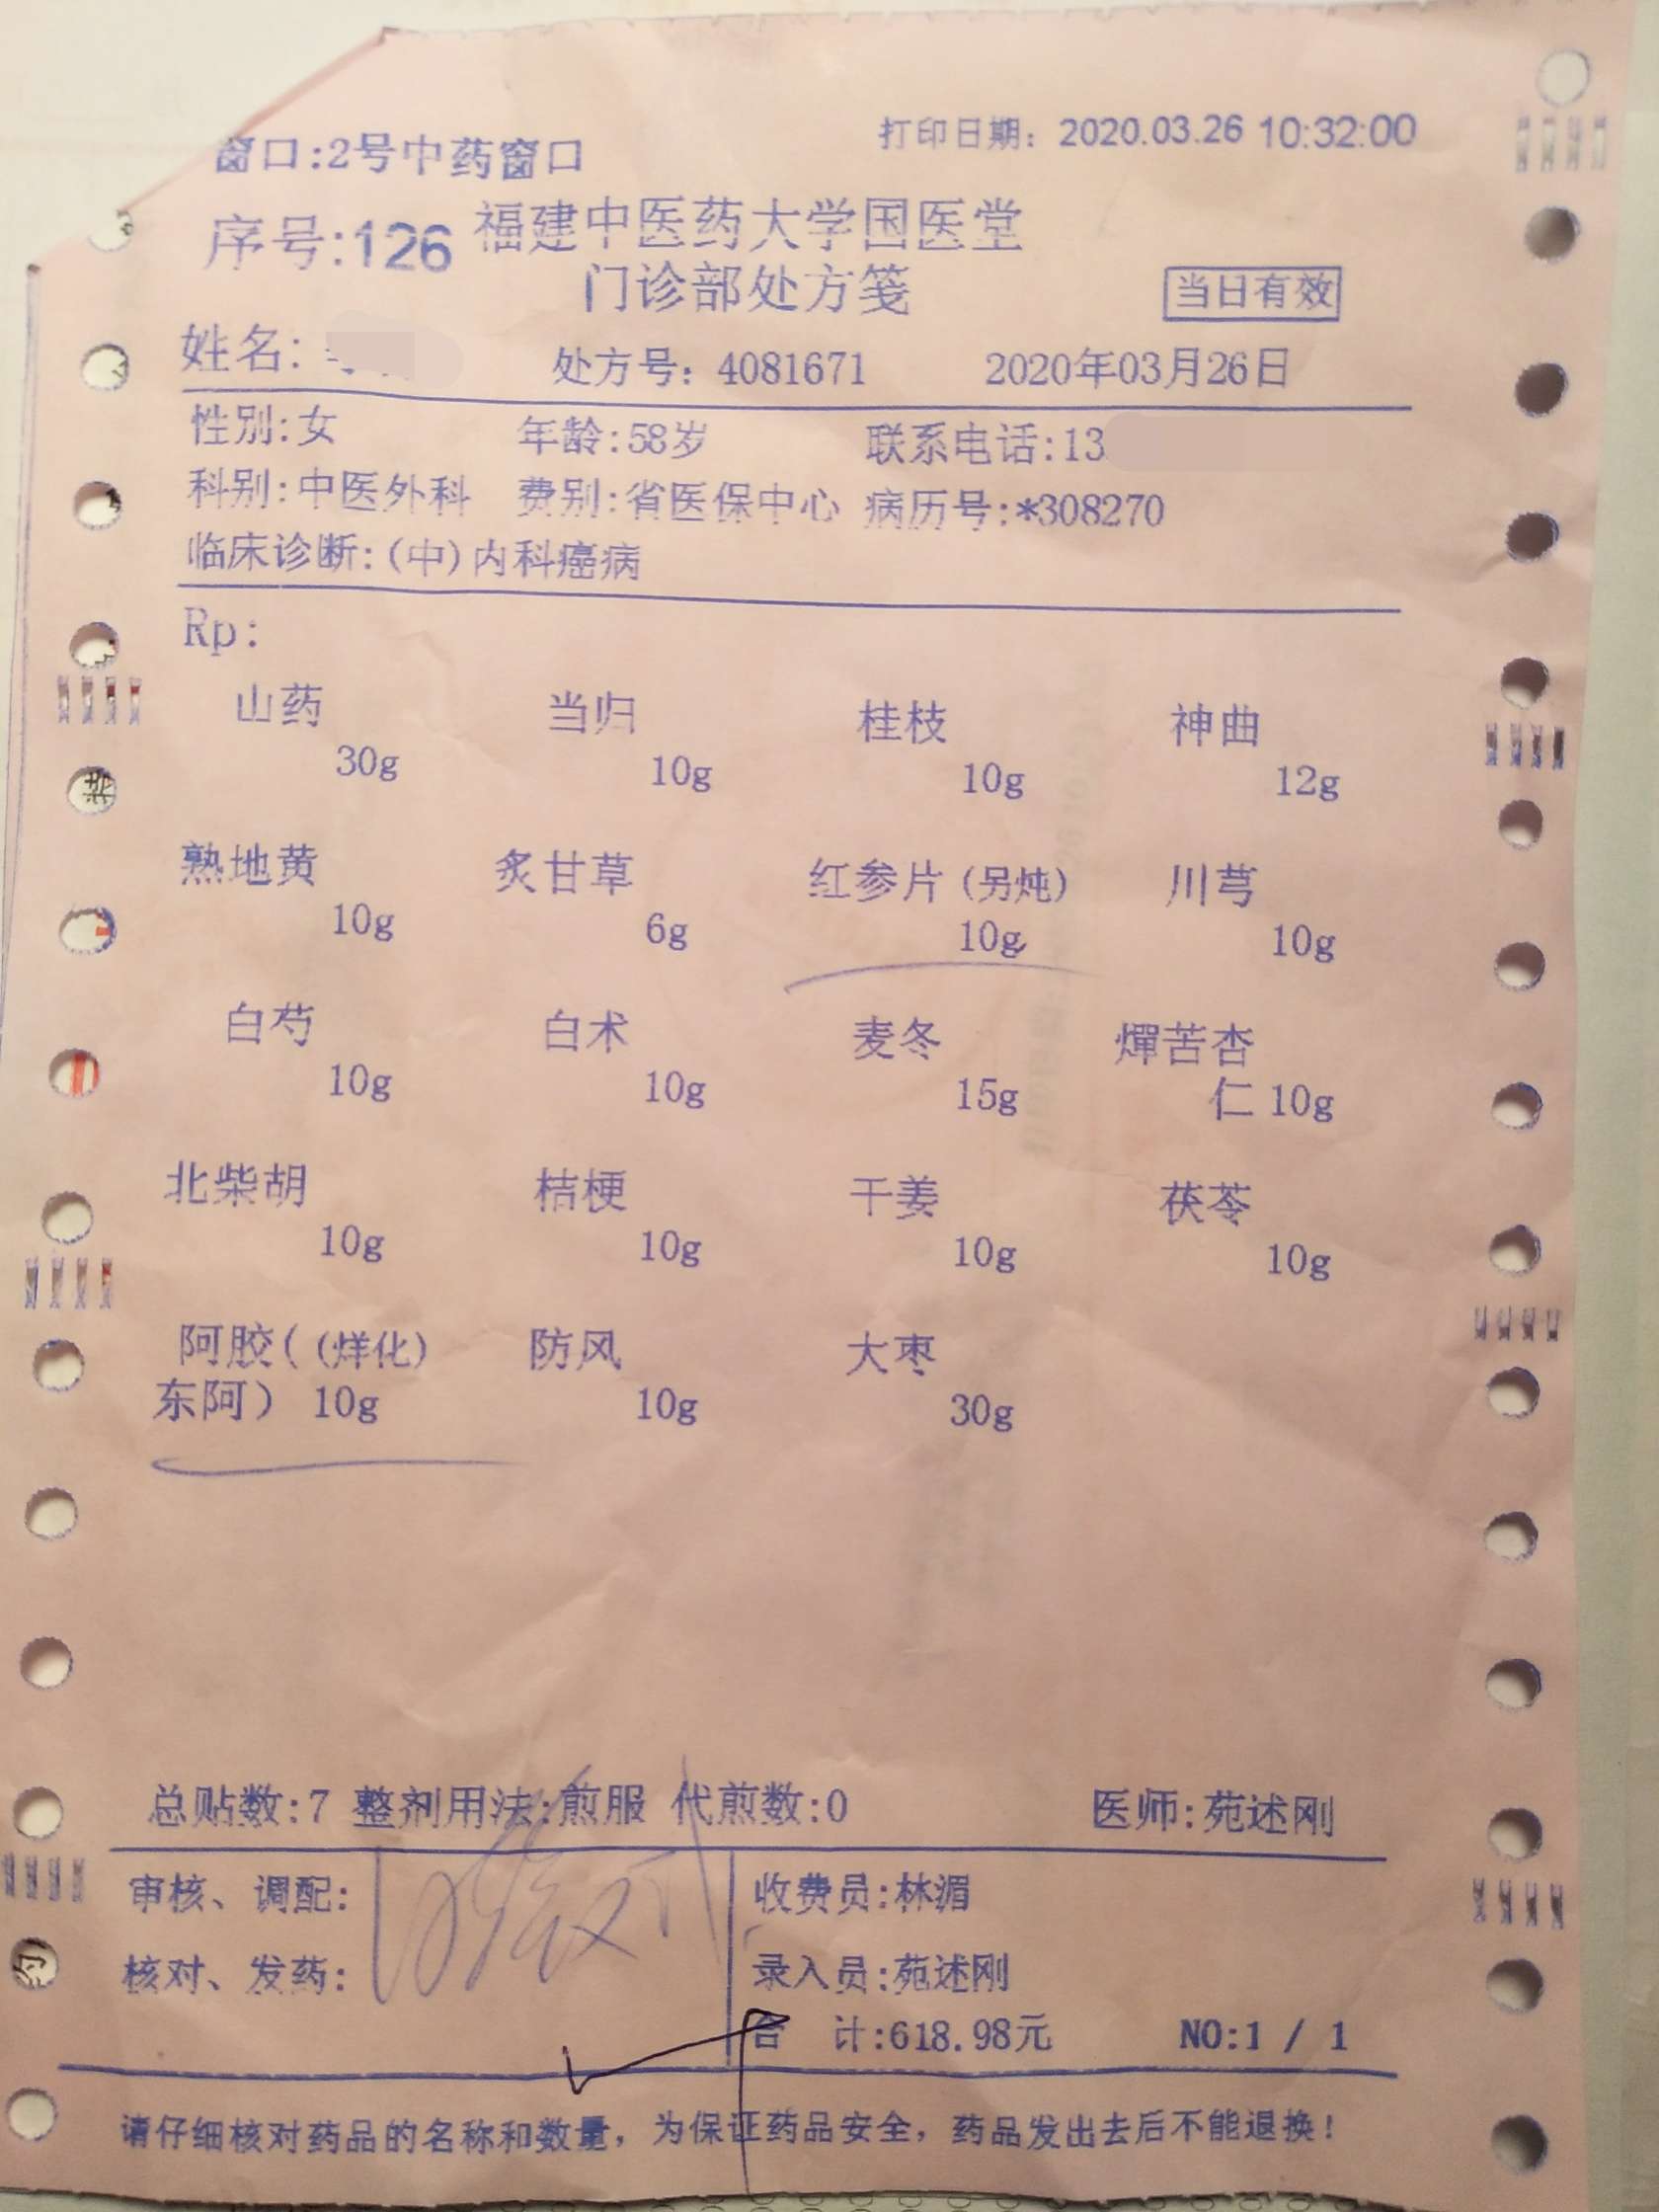 打印日期: 2020.03.26 10:32:00
窗口:2号中药窗口
序号:126 福建中医药大学国医堂
门诊部处方笺 当日有效
姓名: 处方号: 4081671 2020年03月26日
性别:女 年龄:58岁 联系电话:13
科别:中医外科 费别:省医保中心 病历号:*308270
临床诊断:(中)内科癌病
Rp:
山药 当归 桂枝 神曲
30g 10g 10g 12g
熟地黄 炙甘草 红参片(另炖) 川芎
10g 6g 10g 10g
白芍 白术 麦冬 燀苦杏
10g 10g 15g 仁 10g
北柴胡 桔梗 干姜 茯苓
10g 10g 10g 10g
阿胶((烊化) 防风 大枣
东阿) 10g 10g 30g
总贴数:7 整剂用法:煎服 代煎数:0 医师:苑述刚
审核、调配: 收费员:林湄
核对、发药: 录入员:苑述刚
合 计:618.98元 NO:1 / 1
请仔细核对药品的名称和数量，为保证药品安全，药品发出去后不能退换!